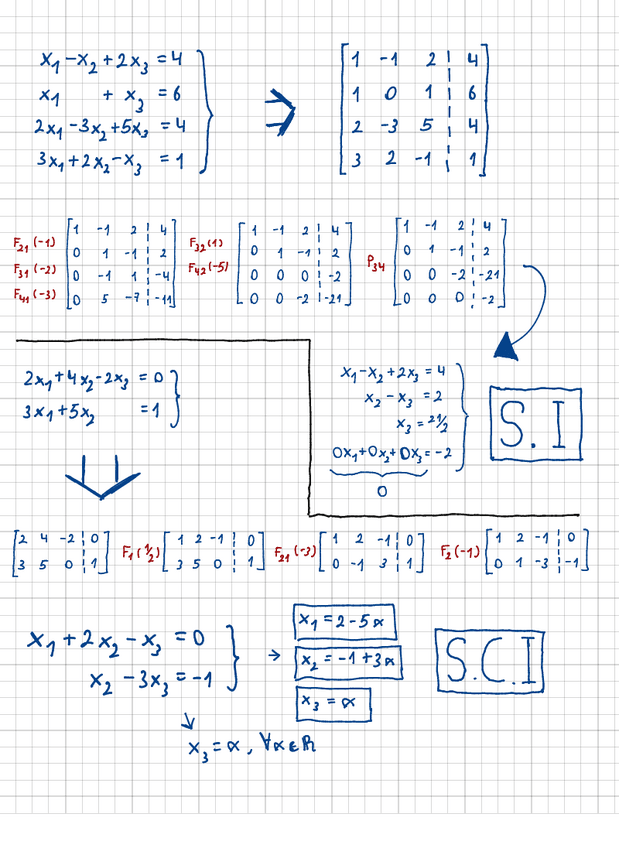 x₁ - x₂ + 2x₃ = 4
x₁ + x₃ = 6
2x₁ - 3x₂ + 5x₃ = 4
3x₁ + 2x₂ - x₃ = 1
1 -1 2 | 4
1 0 1 | 6
2 -3 5 | 4
3 2 -1 | 1
F₂₁(-1)
F₃₁(-2)
F₄₁(-3)
1 -1 2 | 4
0 1 -1 | 2
0 -1 1 | -4
0 5 -7 | -11
F₃₂(1)
F₄₂(-5)
1 -1 2 | 4
0 1 -1 | 2
0 0 0 | -2
0 0 -2 | -21
P₃₄
1 -1 2 | 4
0 1 -1 | 2
0 0 -2 | -21
0 0 0 | -2
x₁ - x₂ + 2x₃ = 4
x₂ - x₃ = 2
x₃ = 21/2
0x₁ + 0x₂ + 0x₃ = -2
0
S.I
2x₁ + 4x₂ - 2x₃ = 0
3x₁ + 5x₂ = 1
2 4 -2 | 0
3 5 0 | 1
F₁(½)
1 2 -1 | 0
3 5 0 | 1
F₂₁(-3)
1 2 -1 | 0
0 -1 3 | 1
F₂(-1)
1 2 -1 | 0
0 1 -3 | -1
x₁ + 2x₂ - x₃ = 0
x₂ - 3x₃ = -1
x₃ = α, ∀α∈ℝ
x₁ = 2 - 5α
x₂ = -1 + 3α
x₃ = α
S.C.I